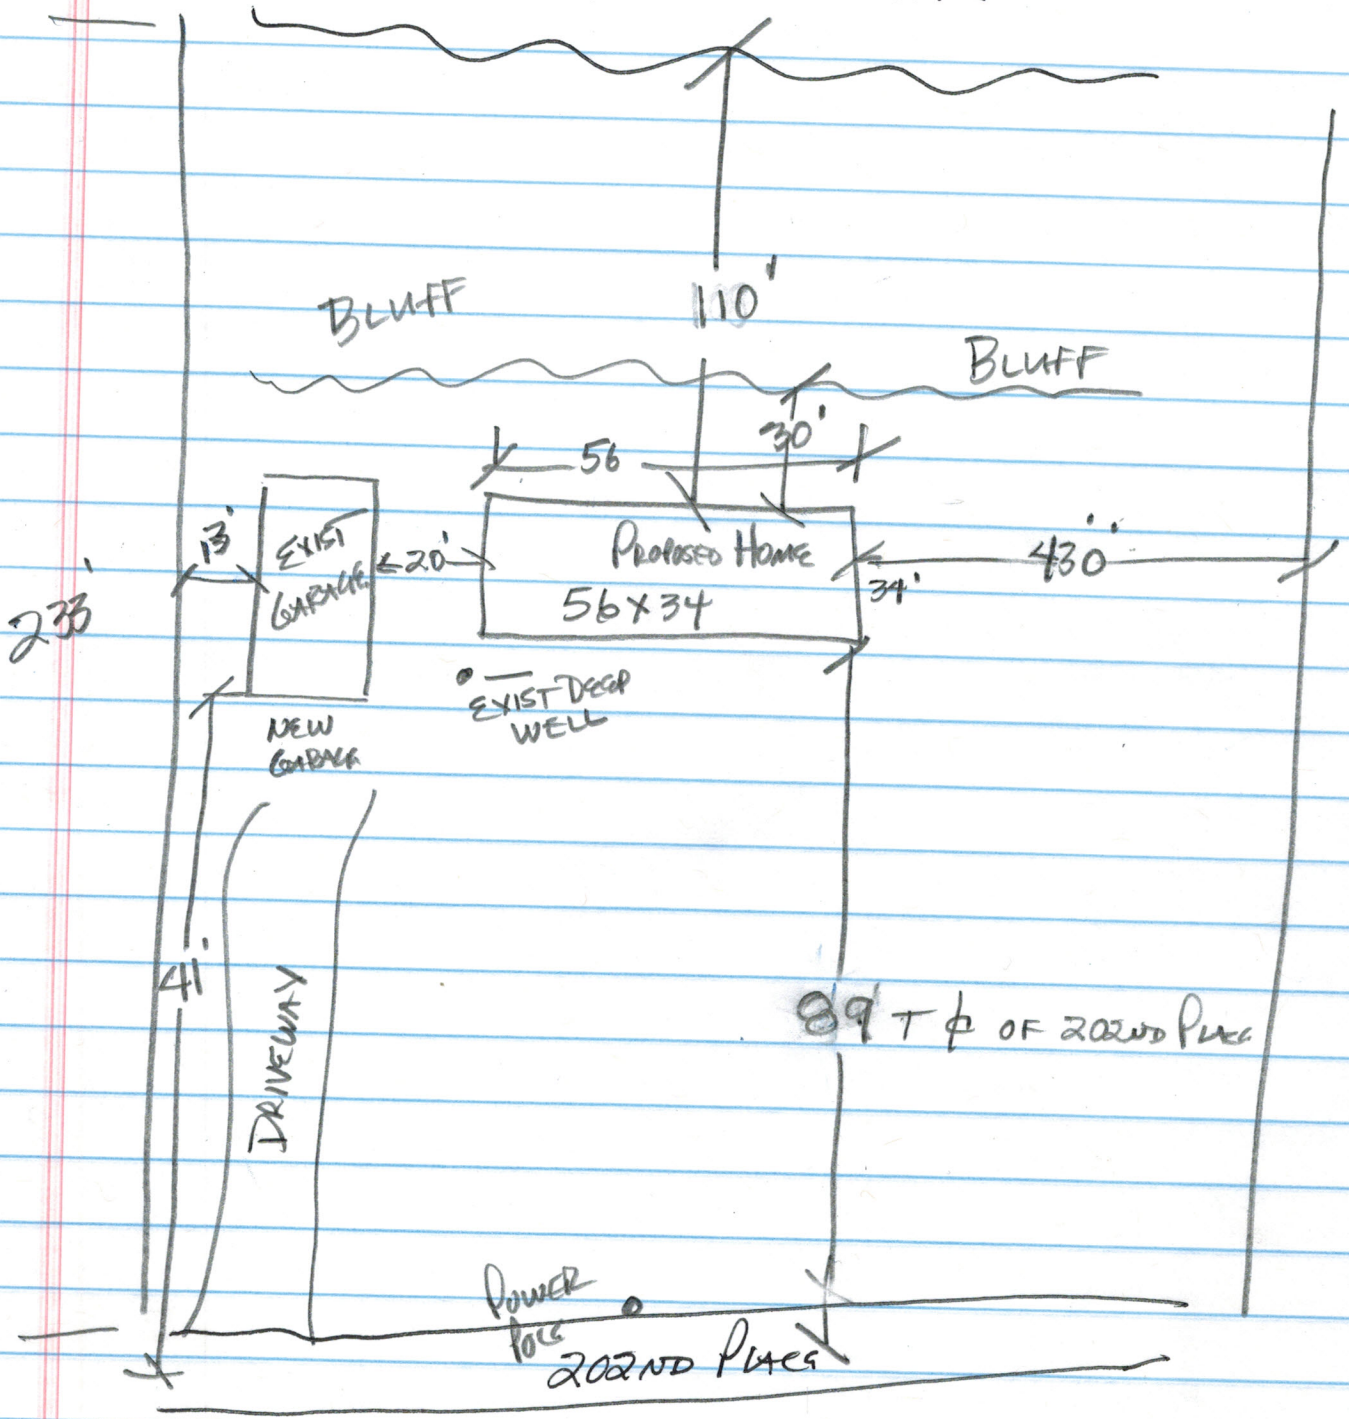 BLUFF
110'
BLUFF
30'
56
13'
EXIST
GARAGE
20'
PROPOSED HOME
56X34
34'
430'
233'
EXIST DEEP
WELL
NEW
GARAGE
41'
DRIVEWAY
89' T ℄ OF 202ND PLACE
POWER
POLE
202ND PLACE